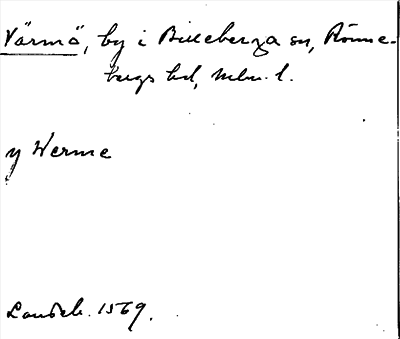 Värmö, by i Billeberga sn, Rönne-
bergs hd, Mlm. l.
y Werme
Landsb. 1569.